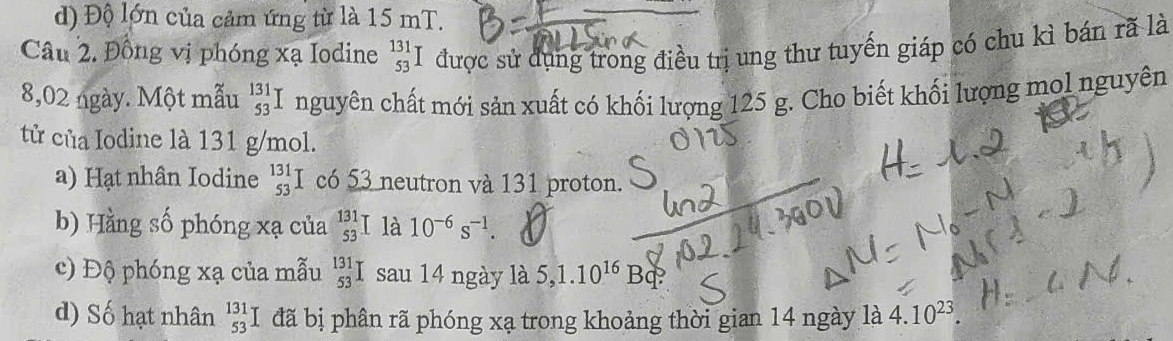 d) Độ lớn của cảm ứng từ là 15 mT. B =
Câu 2. Đồng vị phóng xạ Iodine ¹³¹₅₃I được sử dụng trong điều trị ung thư tuyến giáp có chu kì bán rã là
8,02 ngày. Một mẫu ¹³¹₅₃I nguyên chất mới sản xuất có khối lượng 125 g. Cho biết khối lượng mol nguyên
tử của Iodine là 131 g/mol.
0,125
a) Hạt nhân Iodine ¹³¹₅₃I có 53 neutron và 131 proton. S
b) Hằng số phóng xạ của ¹³¹₅₃I là 10⁻⁶ s⁻¹. Đ
ln2
8,02.24.3600
c) Độ phóng xạ của mẫu ¹³¹₅₃I sau 14 ngày là 5,1.10¹⁶ Bq. S
ΔN = N₀ - N
d) Số hạt nhân ¹³¹₅₃I đã bị phân rã phóng xạ trong khoảng thời gian 14 ngày là 4.10²³.